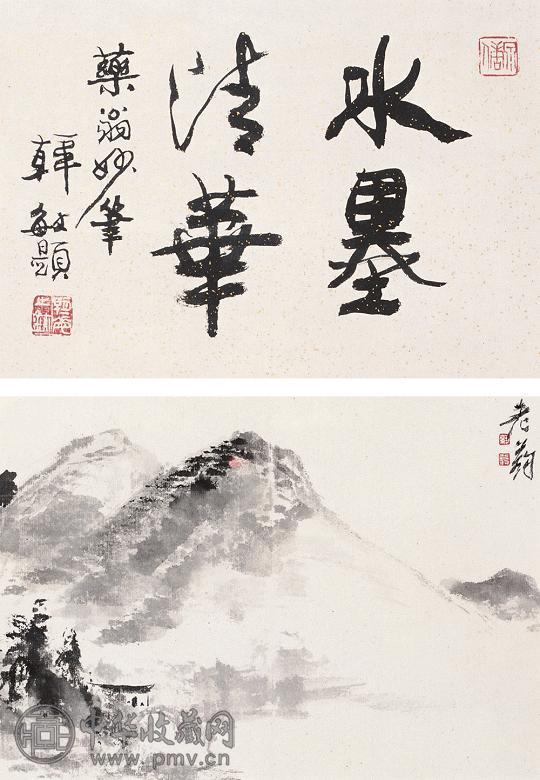 水墨
清華
藥翁妙筆
韓敏題
老葯
中华收藏网
www.pmv.cn